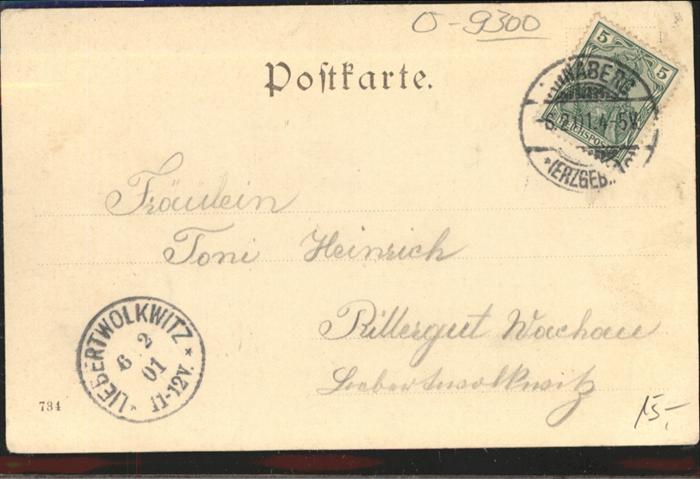 O-9300
Postkarte.
5 5
REICHSPOST
ANNABERG
6.2.01.4-5V.
*(ERZGEB.)
Fräulein
Toni Heinrich
Rittergut Wachau
Liebertwolkwitz
LIEBERTWOLKWITZ
6 2
01
11-12V.
734
15,-